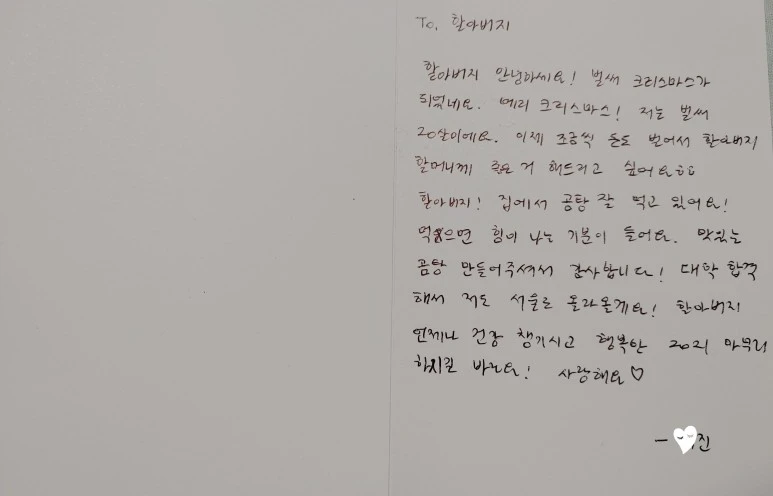 To. 할아버지
할아버지 안녕하세요! 벌써 크리스마스가
되었네요. 메리 크리스마스! 저는 벌써
20살이에요. 이제 조금씩 돈도 벌어서 할아버지
할머니께 좋은 거 해드리고 싶어요ㅎㅎ
할아버지! 집에서 곰탕 잘 먹고 있어요!
먹으면 힘이 나는 기분이 들어요. 맛있는
곰탕 만들어주셔서 감사합니다! 대학 합격
해서 저도 서울로 올라올게요! 할아버지
언제나 건강 챙기시고 행복한 2021 마무리
하시길 바라요! 사랑해요♡
- 진